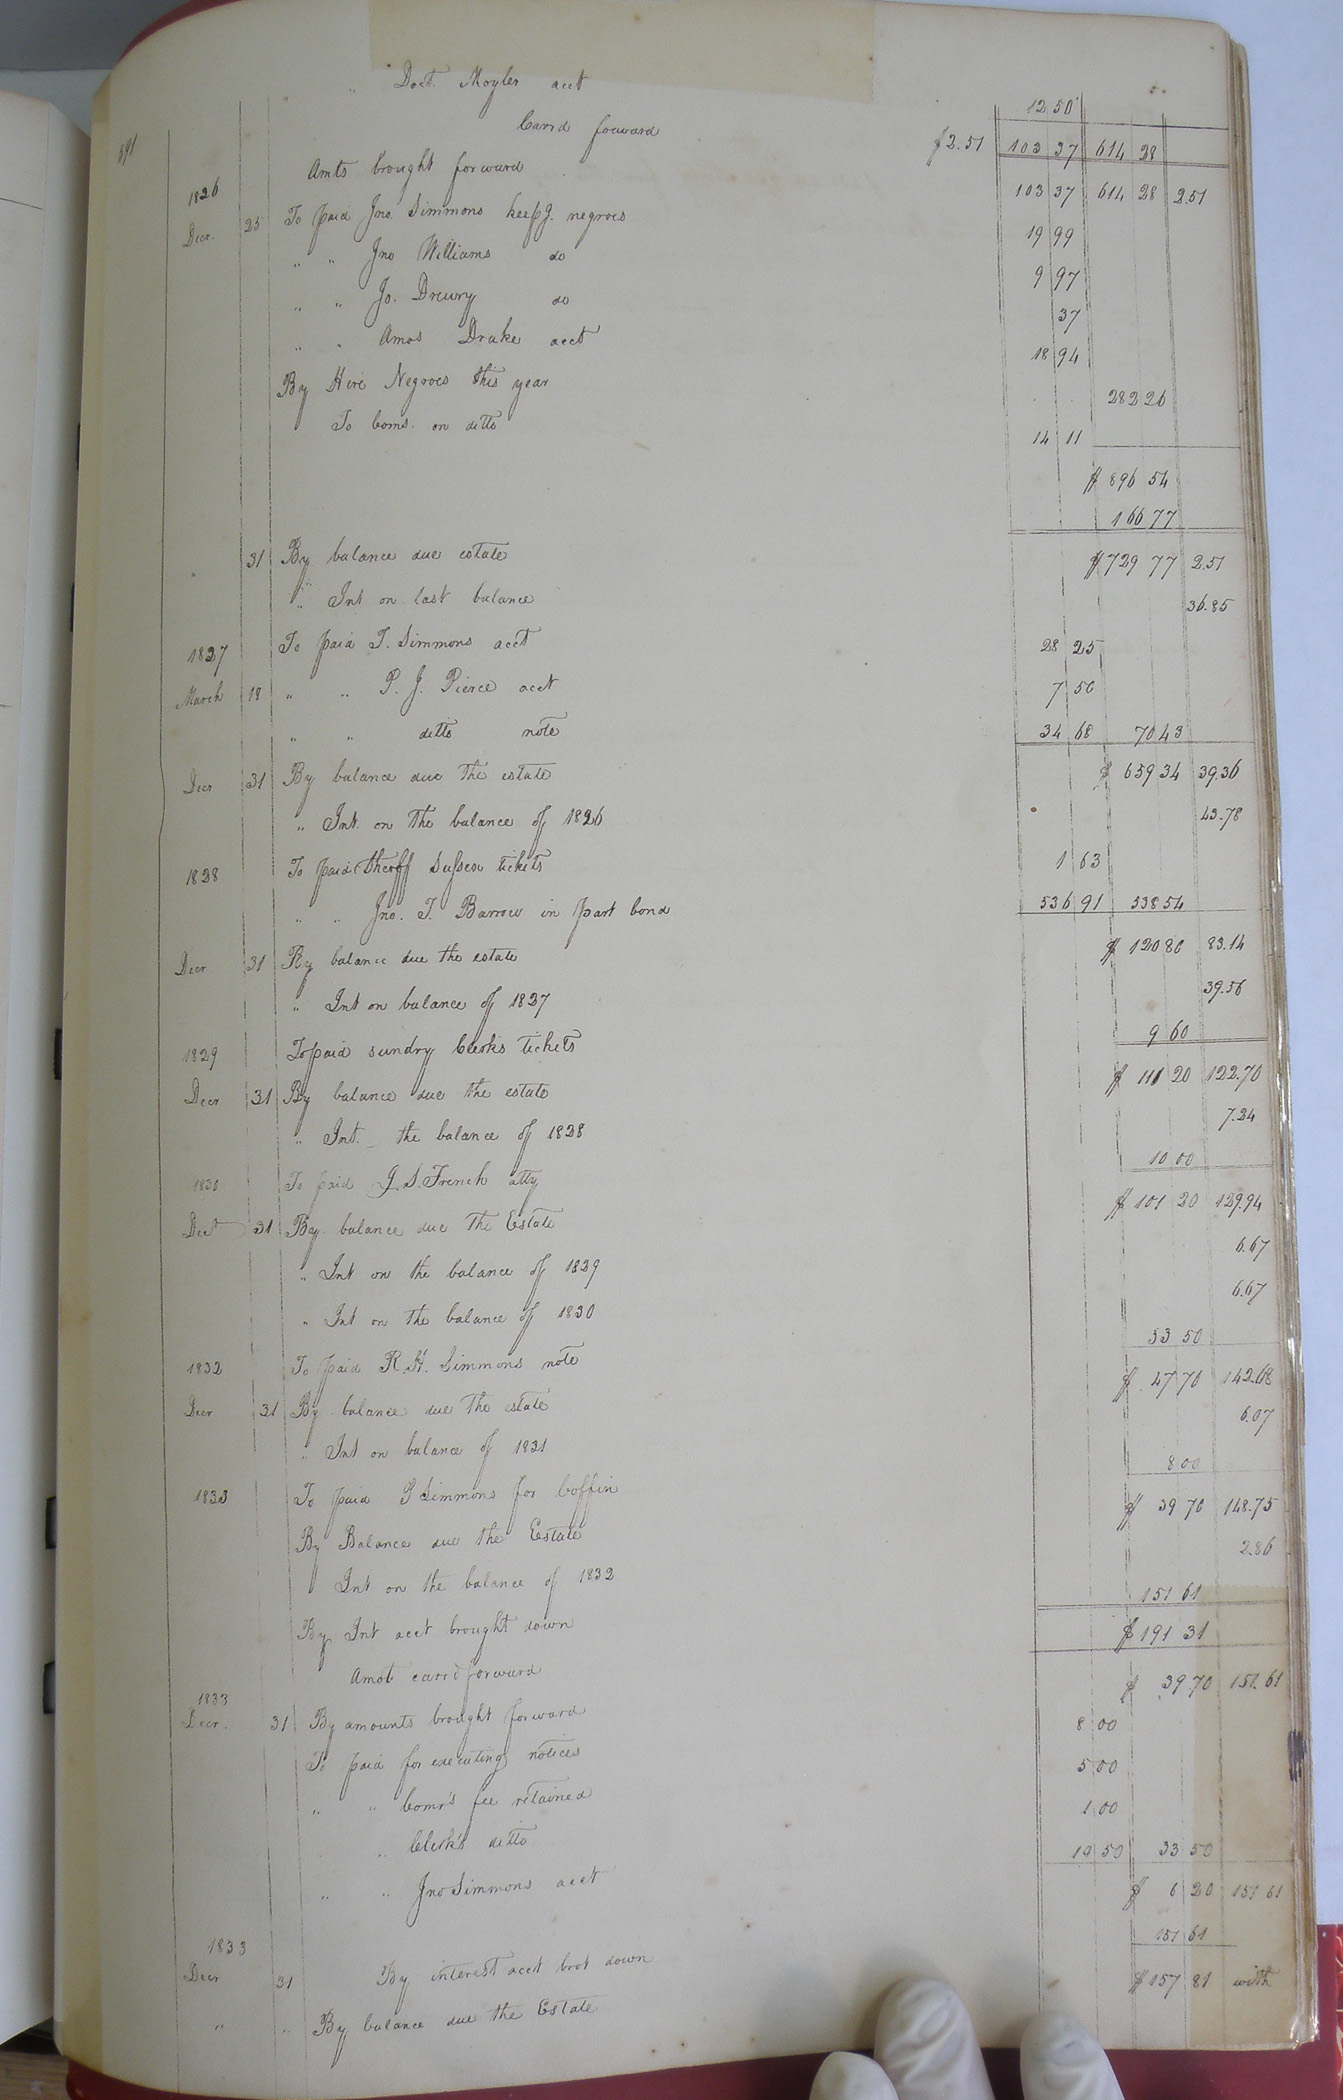 " Doct. Moyler acct 12 50
Carrd forward $2.51 103 37 614 28
691
Amts brought forward 103 37 614 28 2.51
1826
Decr. 25 To paid Jno. Simmons keepg. negroes 19 99
" " Jno Williams do 9 97
" " Jo. Drewry do 37
" " Amos Drake acct 18 94
By Hire Negroes this year 282 26
To Coms. on ditto 14 11
$ 896 54
166 77
" 31 By balance due estate $729 77 2.51
" Int on last balance 36.85
1827 To paid T. Simmons acct 28 25
March 18 " " P. J. Pierce acct 7 50
" " ditto note 34 68 70 43
Decr 31 By balance due the estate $ 659 34 39.36
" Int. on the balance of 1826 43.78
1828 To paid Sheriff Sussex tickets 1 63
" " Jno. T. Barrow in part bond 536 91 538 54
Decr 31 By balance due the estate $ 120 80 83.14
" Int on balance of 1827 39.56
1829 To paid sundry Clerks tickets 9 60
Decr 31 By balance due the estate $ 111 20 122.70
" Int. the balance of 1828 7.24
1830 To paid J. S. French atty 10 00
Dect 31 By balance due the Estate $ 101 20 129.94
" Int on the balance of 1829 6.67
" Int on the balance of 1830 6.67
1832 To paid R. H. Simmons note 53 50
Decr 31 By balance due the estate $ 47 70 142.68
" Int on balance of 1831 6.07
1833 To paid Simmons for Coffin 8 00
By Balance due the Estate $ 39 70 148.75
Int on the balance of 1832 2.86
By Int acct brought down 151 61
Amot carrd forward $ 191 31
1833
Decr. 31 By amounts brought forward $ 39 70 151.61
To paid for executing notices 8 00
" " Comr's fee retained 5 00
" Clerk's ditto 1 00
" " Jno Simmons acct 19 50 33 50
$ 6 20 151 61
1833
Decr 31 By interest acct brot down 151 61
" " By balance due the Estate $157 81 with